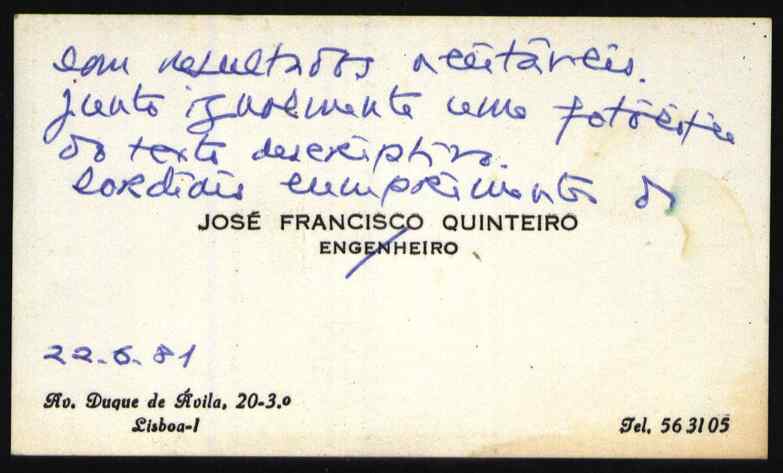 com resultados aceitáveis.
junto igualmente uma fotocópia
do texto descriptivo.
cordiais cumprimentos do
JOSÉ FRANCISCO QUINTEIRO
ENGENHEIRO
22.6.81
Av. Duque de Ávila, 20-3.º
Lisboa-1
Tel. 563105